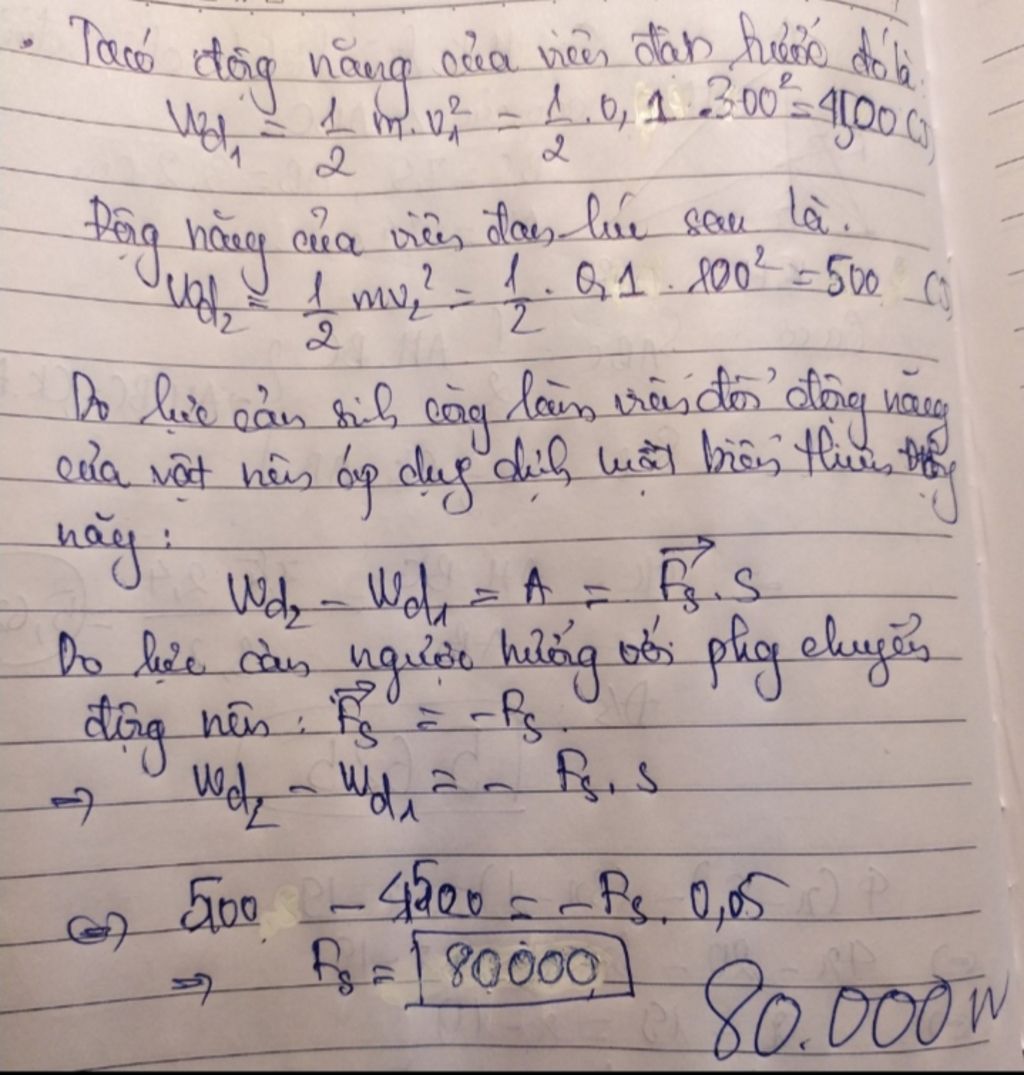 Ta có động năng của viên đạn trước đó là
Wd₁ = 1/2 m.v₁² = 1/2 . 0,1 . 300² = 4500 (J)
Động năng của viên đạn lúc sau là.
Wd₂ = 1/2 mv₂² = 1/2 . 0,1 . 100² = 500 (J)
Do lực cản sinh công làm biến đổi động năng
của vật nên áp dụng định luật biến thiên động
năng :
Wd₂ - Wd₁ = A = F⃗s . S
Do lực cản ngược hướng với phg chuyển
động nên : F⃗s = -Fs.
⇒ Wd₂ - Wd₁ = - Fs . s
⇔ 500 - 4500 = -Fs . 0,05
⇒ Fs = 80000
80.000 N